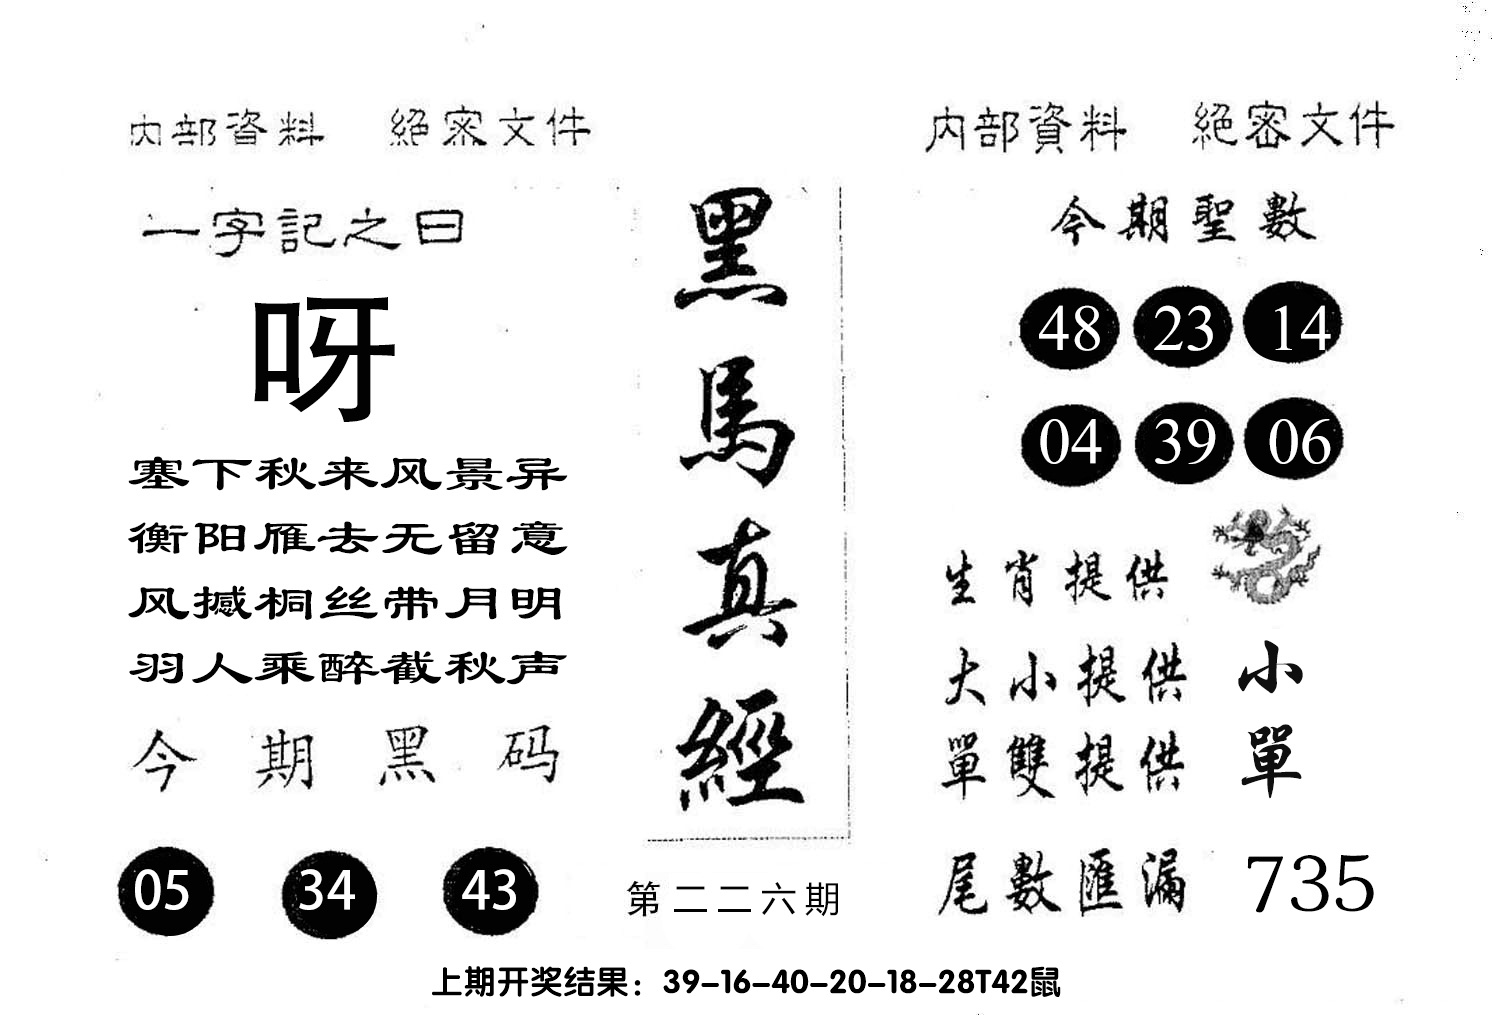 内部資料 絕密文件
一字記之曰
呀
塞下秋来风景异
衡阳雁去无留意
风撼桐丝带月明
羽人乘醉截秋声
今期黑码
05 34 43
黑馬真經
第二二六期
内部資料 絕密文件
今期聖數
48 23 14
04 39 06
生肖提供
大小提供 小
單雙提供 單
尾數匯漏 735
上期开奖结果：39-16-40-20-18-28T42鼠